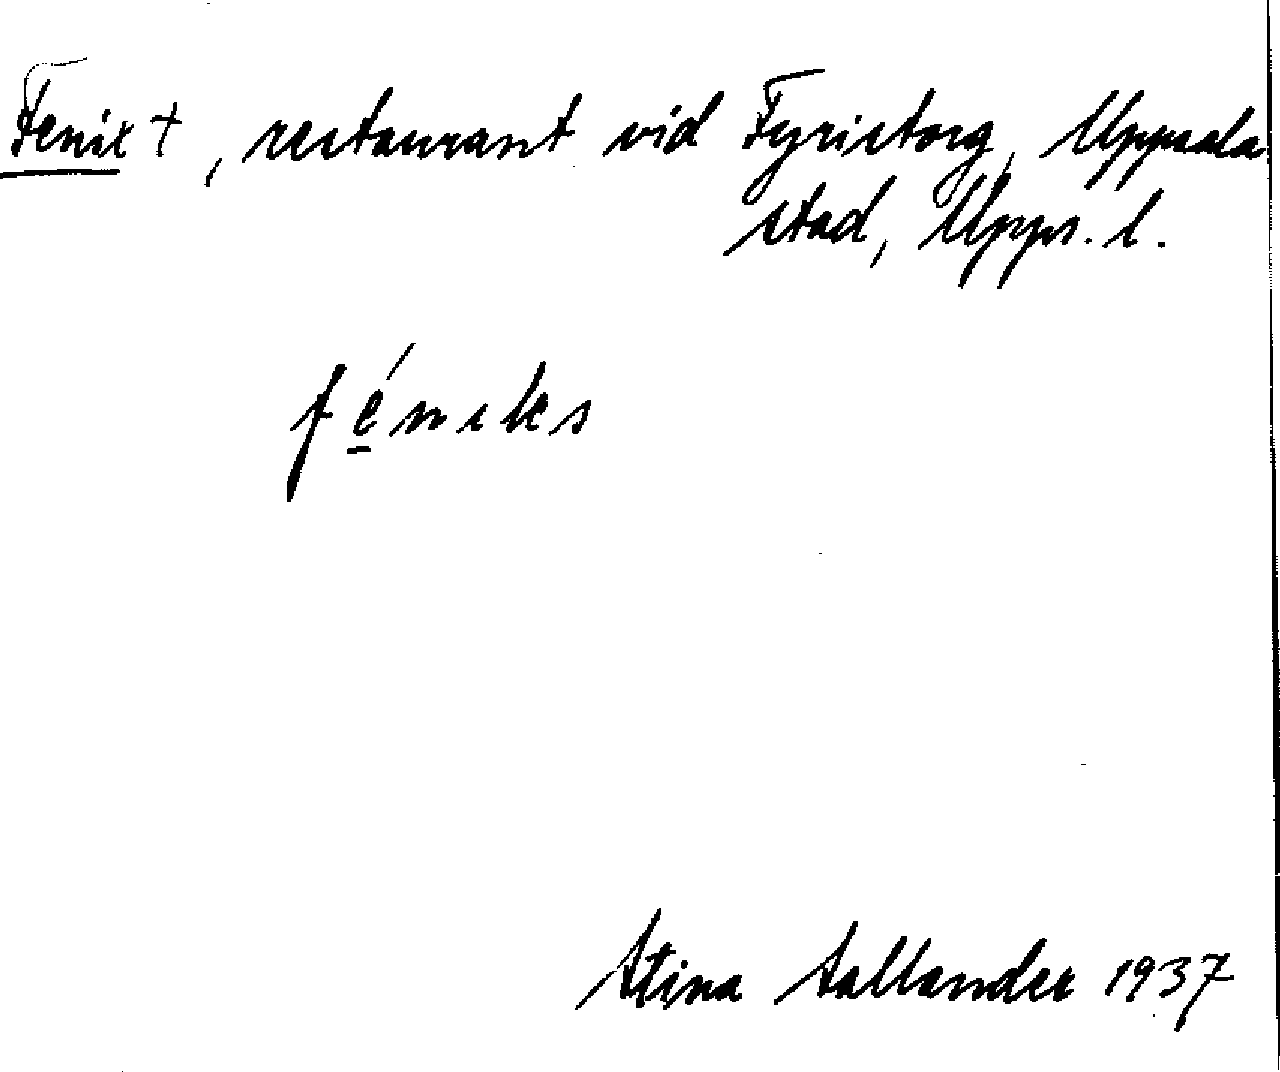 Fenix †, restaurant vid Fyristorg, Uppsala
stad, Upps. l.
fé̱niks
Stina Sallander 1937